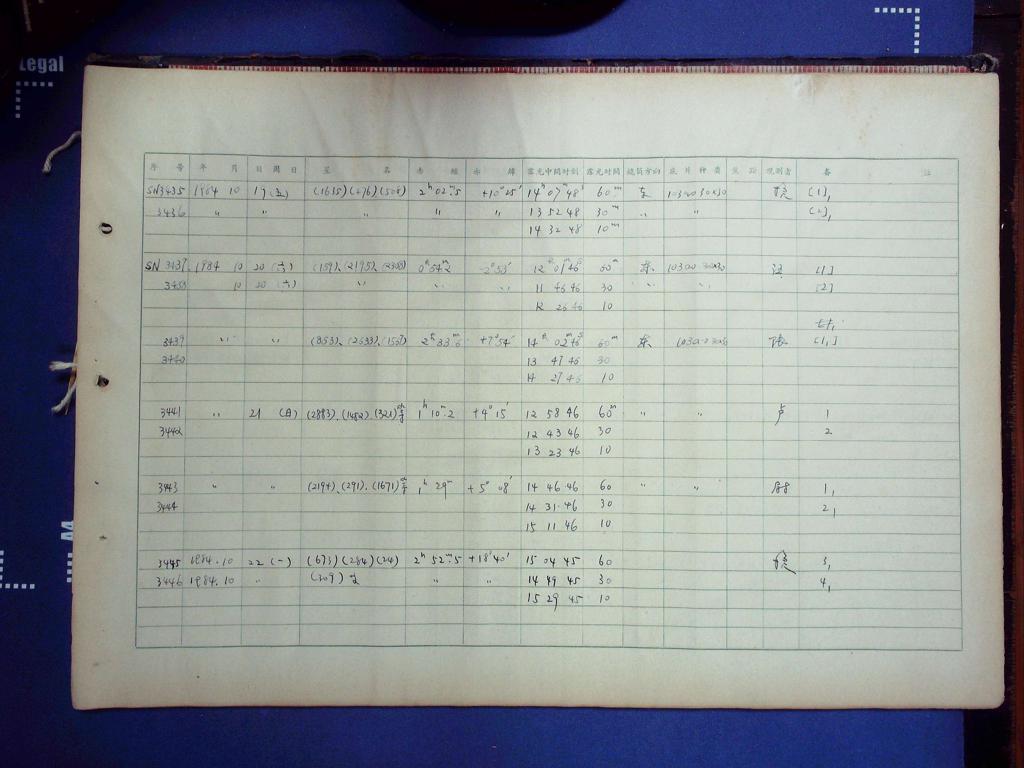 Legal
A4
序 号 年 月 日 周 日 星 名 赤 经 赤 纬 露光中间时刻 露光时间 镜筒方向 底 片 种 类 观测者 备 註
SN3435 1984 10 19 (五) (1635) (276) (508) 2ʰ 02ᵐ.5 +10°25′ 14ʰ 07ᵐ 48ˢ 60ᵐ 东 [1],
3436 〃 〃 〃 〃 〃 13 52 48 30ᵐ 〃 〃 [2],
14 32 48 10ᵐ
SN 3437 1984 10 20 (六) (159)、(2195)、 0ʰ54ᵐ.2 -2°53′ 12ʰ 01ᵐ 46ˢ 60ᵐ 东 10300 [1]
3438 10 20 (六) 〃 〃 〃 11 46 46 30 〃 〃 [2]
12 26 46 10
3439 〃 〃 (863)、(2633)、(1567) 2ʰ 33ᵐ.6 +7°54′ 14ʰ 02ᵐ 46ˢ 60ᵐ 东 [1,]
3440 13 47 46 30
14 27 46 10
3441 〃 21 (日) (2883)、(1452)、(321) 1ʰ 10ᵐ.2 +4°15′ 12 58 46 60ᵐ 〃 〃 卢 1
3442 12 43 46 30 2
13 23 46 10
3443 〃 〃 (2194)、(291)、(1671) 1ʰ 29ᵐ +5°08′ 14 46 46 60 〃 〃 1,
3444 14 31 46 30 2,
15 11 46 10
3445 1984.10 22 (一) (673) (284) (24) 2ʰ 52ᵐ.5 +18°40′ 15 04 45 60 3,
3446 1984.10 〃 (309) 〃 〃 14 49 45 30 4,
15 29 45 10